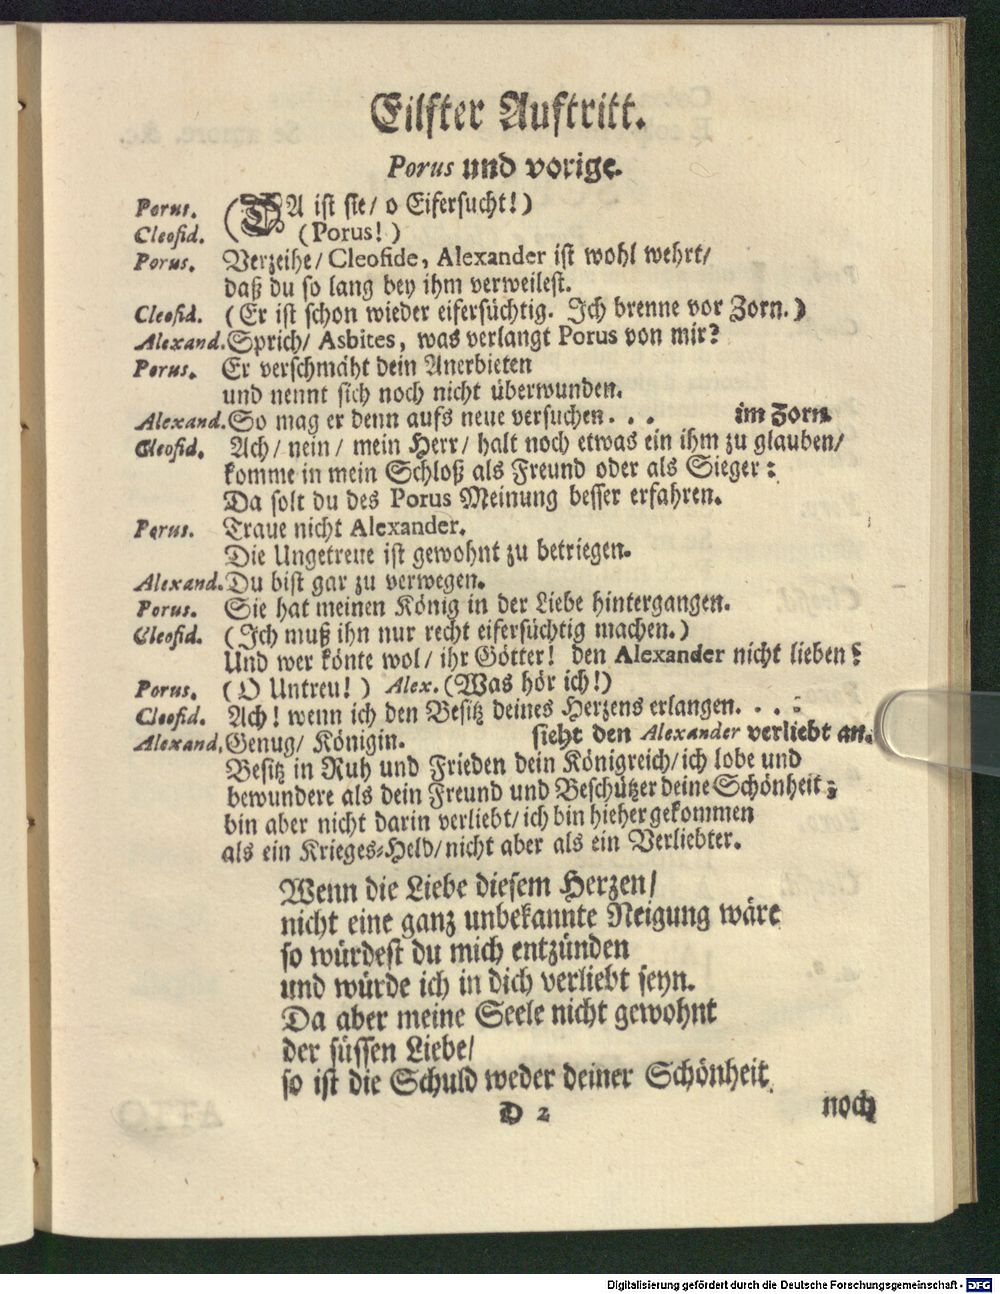 Eilfter Auftritt.
Porus und vorige.
Porus. (DA ist sie/ o Eifersucht!)
Cleofid. (Porus!)
Porus. Verzeihe/ Cleofide, Alexander ist wohl wehrt/
daß du so lang bey ihm verweilest.
Cleofid. (Er ist schon wieder eifersüchtig. Ich brenne vor Zorn.)
Alexand. Sprich/ Asbites, was verlangt Porus von mir?
Porus. Er verschmäht dein Anerbieten
und nennt sich noch nicht überwunden.
Alexand. So mag er denn aufs neue versuchen. . . im Zorn.
Cleofid. Ach/ nein/ mein Herr/ halt noch etwas ein ihm zu glauben/
komme in mein Schloß als Freund oder als Sieger:
Da solt du des Porus Meinung besser erfahren.
Porus. Traue nicht Alexander.
Die Ungetreue ist gewohnt zu betriegen.
Alexand. Du bist gar zu verwegen.
Porus. Sie hat meinen König in der Liebe hintergangen.
Cleofid. (Ich muß ihn nur recht eifersüchtig machen.)
Und wer könte wol/ ihr Götter! den Alexander nicht lieben?
Porus. (O Untreu!) Alex. (Was hör ich!)
Cleofid. Ach! wenn ich den Besitz deines Herzens erlangen. . . :
sieht den Alexander verliebt an.
Alexand. Genug/ Königin.
Besitz in Ruh und Frieden dein Königreich/ ich lobe und
bewundere als dein Freund und Beschützer deine Schönheit;
bin aber nicht darin verliebt/ ich bin hieher gekommen
als ein Krieges-Held/ nicht aber als ein Verliebter.
Wenn die Liebe diesem Herzen/
nicht eine ganz unbekannte Neigung wäre
so würdest du mich entzünden
und würde ich in dich verliebt seyn.
Da aber meine Seele nicht gewohnt
der süssen Liebe/
so ist die Schuld weder deiner Schönheit
D 2 noch
Digitalisierung gefördert durch die Deutsche Forschungsgemeinschaft - DFG